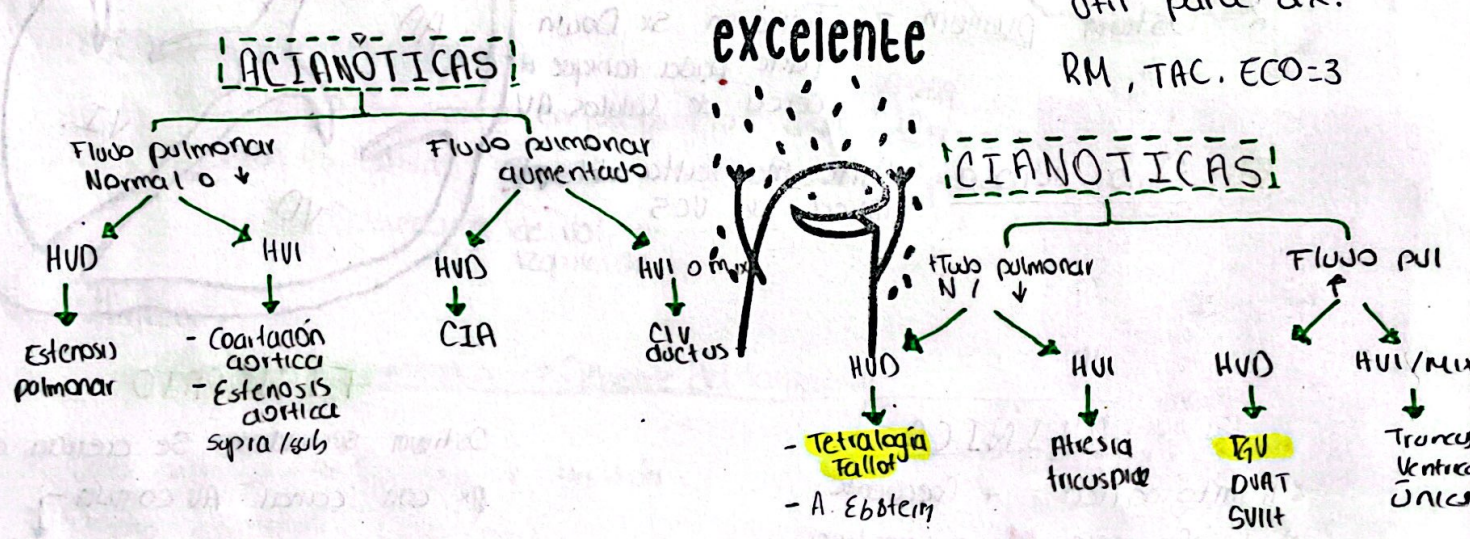 útil para dx.
excelente
RM, TAC. ECO=3
ACIANÓTICAS
Flujo pulmonar
Normal o ↓
HVD
Estenosis
pulmonar
HVI
- Coartación
aortica
- Estenosis
aortica
Supra/sub
Flujo pulmonar
aumentado
HVD
CIA
HVI o mix
CIV
ductus
CIANOTICAS
pulmonar
↓
HVD
- Tetralogía
Fallot
- A. Ebstein
HVI
Atresia
tricuspide
Flujo pul
↑
HVD
TGV
DVAT
HVI/Mix
Truncus
Único